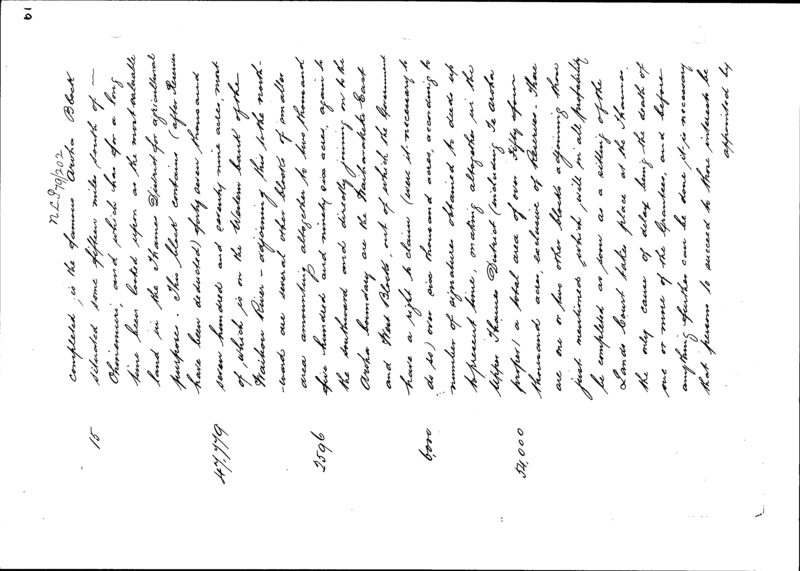 19
NLD 79/202
completed, is the famous Aroha Block
15 situated some fifteen miles south of —
Ohinemuri, and which has for a long
time been looked upon as the most valuable
land in the Thames District for agricultural
purposes. This block contains (after Reserves
have been deducted) forty seven thousand
47,779 seven hundred and seventy nine acres, most
of which is on the Western bank of the
Waihou River – adjoining this to the north-
-ward are several other blocks of smaller
area amounting altogether to two thousand
2596 five hundred and ninety six acres, again to
the southward and directly joining on to the
Aroha boundary are the Waiharakeke East
and West Blocks, out of which the Government
have a right to claim (were it necessary to
6,000 do so) over six thousand acres, according to
number of signatures obtained to deeds up
to present time, making altogether in the
Upper Thames District (including Te Aroha
proper) a total area of over Fifty four
54,000 thousand acres, exclusive of Reserves. There
are one or two other blocks adjoining those
just mentioned which will in all probability
be completed as soon as a sitting of the
Lands Court takes place at the Thames,
the only cause of delay being the death of
one or more of the Grantees, and before
anything further can be done it is necessary
that persons to succeed to those interests be
appointed by